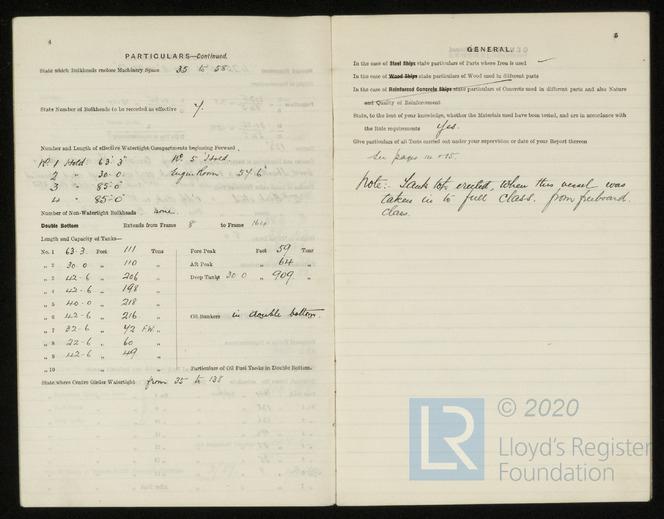 4
PARTICULARS—Continued.
State which Bulkheads enclose Machinery Space 35 to 58
State Number of Bulkheads to be recorded as effective 7.
Number and Length of effective Watertight Compartments beginning Forward
No 1 Hold 63'·3" No 5 Hold
2 " 30·0 Engine Room 54·6"
3 " 85·0"
4 " 85·0"
Number of Non-Watertight Bulkheads none.
Double Bottom Extends from Frame 8 to Frame 164
Length and Capacity of Tanks—
No. 1 63·3 Feet 111 Tons
„ 2 30·0 „ 110 „
„ 3 42-6 „ 206 „
„ 4 42-6 „ 198 „
„ 5 40-0 „ 218 „
„ 6 42-6 „ 216 „
„ 7 32-6 „ 42 F.W. „
„ 8 22-6 „ 60 „
„ 9 42-6 „ 49 „
„ 10
Fore Peak Feet 59 Tons
Aft Peak „ 64 „
Deep Tanks 30·0 „ 909 „
Oil Bunkers in double bottom.
Particulars of Oil Fuel Tanks in Double Bottom.
State where Centre Girder Watertight from 35 to 138
5
GENERAL.
In the case of Steel Ships state particulars of Parts where Iron is used
In the case of Wood Ships state particulars of Wood used in different parts
In the case of Reinforced Concrete Ships state particulars of Concrete used in different parts and also Nature
and Quality of Reinforcement
State, to the best of your knowledge, whether the Materials used have been tested, and are in accordance with
the Rule requirements Yes.
Give particulars of all Tests carried out under your supervision or date of your Report thereon
See pages 14 + 15.
Note:- Tank tops erected, when this vessel was
taken in to full class. from freeboard
class.
LR
© 2020
Lloyd's Register
Foundation